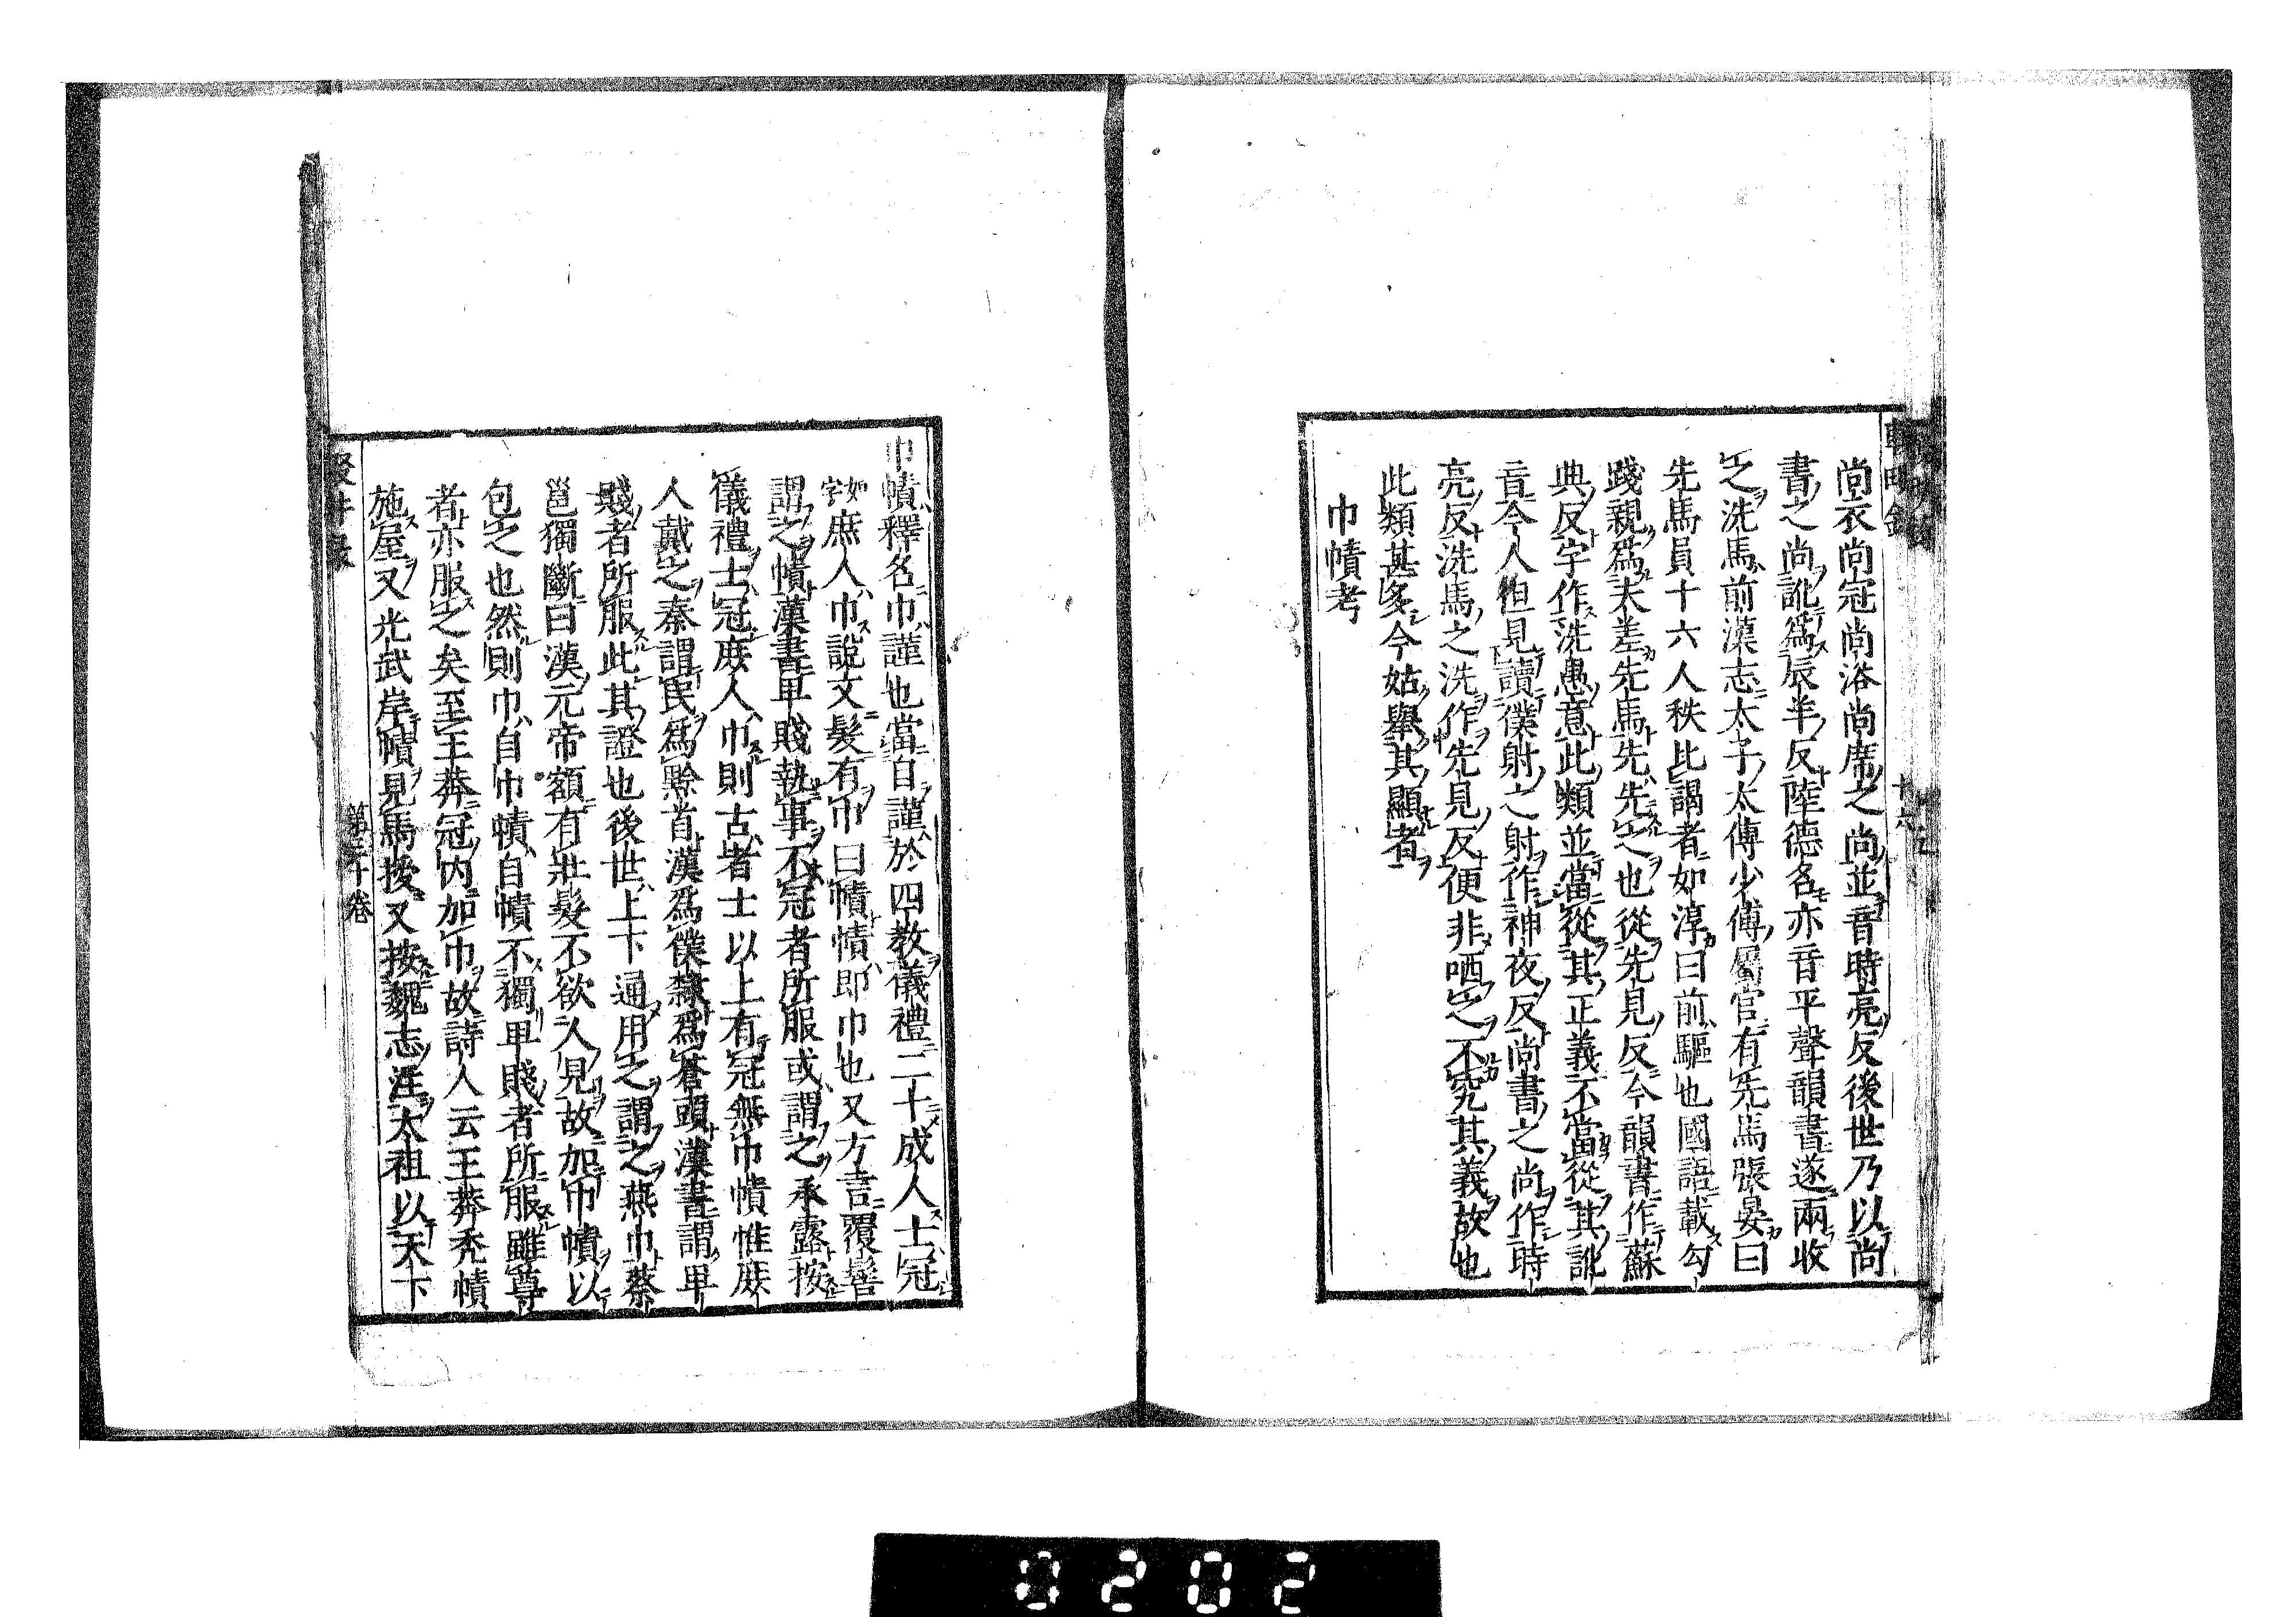 尚衣尚冠尚浴尚席之尚並音時亮反後世乃以尚
書之尚訛爲辰羊反陸德名亦音平聲韻書遂兩收
之洗馬前漢志太子太傅少傅屬官有先馬張晏曰
先馬員十六人秩比謁者如淳曰前驅也國語載勾
踐親爲夫差先馬先先之也從先見反今韻書作蘇
典反字作洗愚意此類並當從其正義不當從其訛
音今人但見讀僕射之射作神夜反尚書之尚作時
亮反洗馬之洗作先見反便非哂之不究其義故也
此類甚多今姑舉其顯者
巾幘考
巾幘釋名巾謹也當自謹於四教儀禮二十成人士冠
如字庶人巾說文髮有巾曰幘幘即巾也又方言覆髻
謂之幘漢書卑賤執事不冠者所服或謂之承露按
儀禮士冠庶人巾則古者士以上有冠無巾幘惟庶
人戴之秦謂民爲黔首漢爲僕隸爲蒼頭漢書謂卑
賤者所服此其證也後世上下通用之謂之燕巾蔡
邕獨斷曰漢元帝額有壯髮不欲人見故加巾幘以
包之也然則巾自巾幘自幘不獨卑賤者所服雖尊
者亦服之矣至王莽冠內加巾故詩人云王莽禿幘
施屋又光武岸幘見馬援又按魏志注太祖以天下
第二十卷